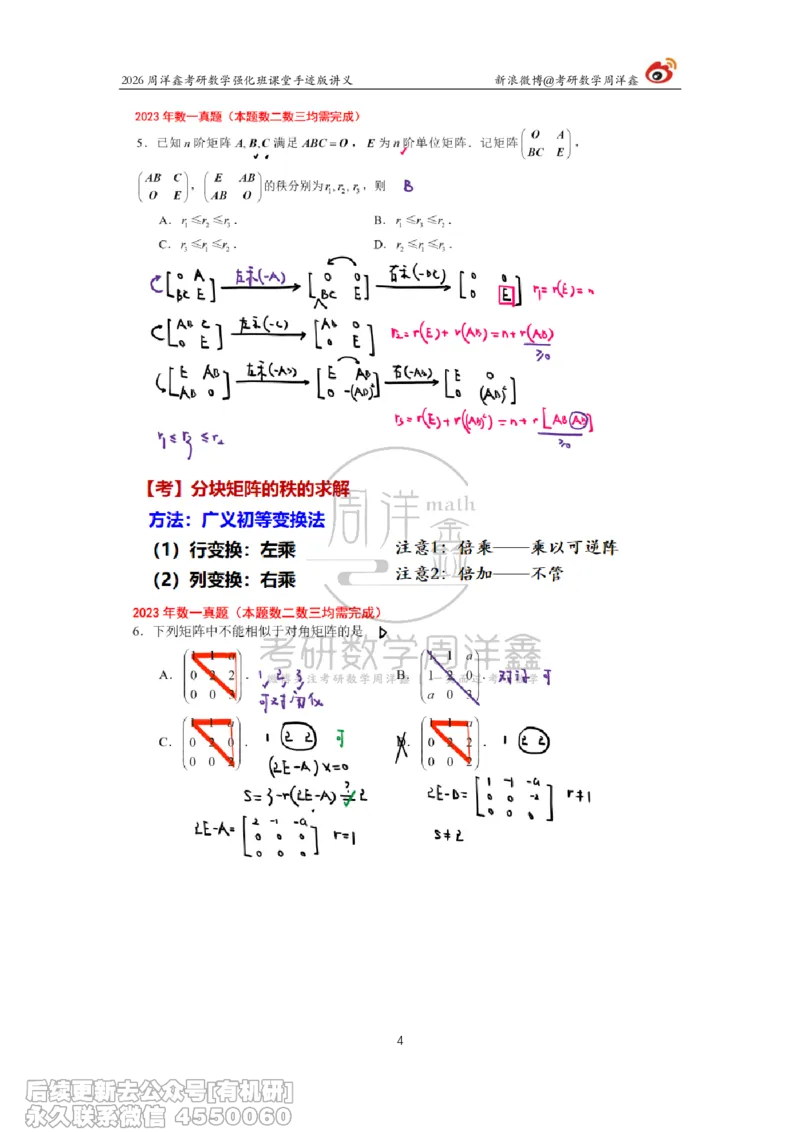 2026 周洋鑫考研数学强化班课堂手迹版讲义 新浪微博@考研数学周洋鑫
2023 年数一真题（本题数二数三均需完成）
5. 已知 n 阶矩阵 A, B, C 满足 ABC = O，E 为 n 阶单位矩阵．记矩阵 (O A; BC E)，
(AB C; O E)，(E AB; AB O) 的秩分别为 r₁, r₂, r₃，则 B
A. r₁≤r₂≤r₃． B. r₁≤r₃≤r₂．
C. r₃≤r₁≤r₂． D. r₂≤r₁≤r₃．
[0 A; BC E] 左乘(-A) [0 0; BC E] 右乘(-BC) [0 0; 0 E] r₁=r(E)=n
[AB C; 0 E] 左乘(-C) [AB 0; 0 E] r₂=r(E)+r(AB)=n+r(AB)
≥0
[E AB; AB 0] 左乘(-AB) [E AB; 0 -(AB)²] 右(-AB) [E 0; 0 (AB)²]
r₃=r(E)+r((AB)²)=n+r[AB AB]
≥0
r₁≤r₃≤r₂
【考】分块矩阵的秩的求解
方法：广义初等变换法
（1）行变换：左乘 注意1：倍乘——乘以可逆阵
（2）列变换：右乘 注意2：倍加——不管
周洋鑫 math
2023 年数一真题（本题数二数三均需完成）
6. 下列矩阵中不能相似于对角矩阵的是 D
考研数学周洋鑫
A. (1 1 a; 0 2 2; 0 0 3)． 1, 2, 3, B. (1 1 a; 1 2 0; a 0 3)． 对称 可
可对角化
C. (1 1 a; 0 2 0; 0 0 2)． 1 2 2 可 D. (1 1 a; 0 2 2; 0 0 2)． 1 2 2
(2E-A)x=0
S=3-r(2E-A)=2 ? 2E-D=[1 -1 -a; 0 0 -2; 0 0 0] r≠1
2E-A=[2 -1 -a; 0 0 0; 0 0 0] r=1 S≠2
4
后续更新去公众号[有机研]
永久联系微信 4550060